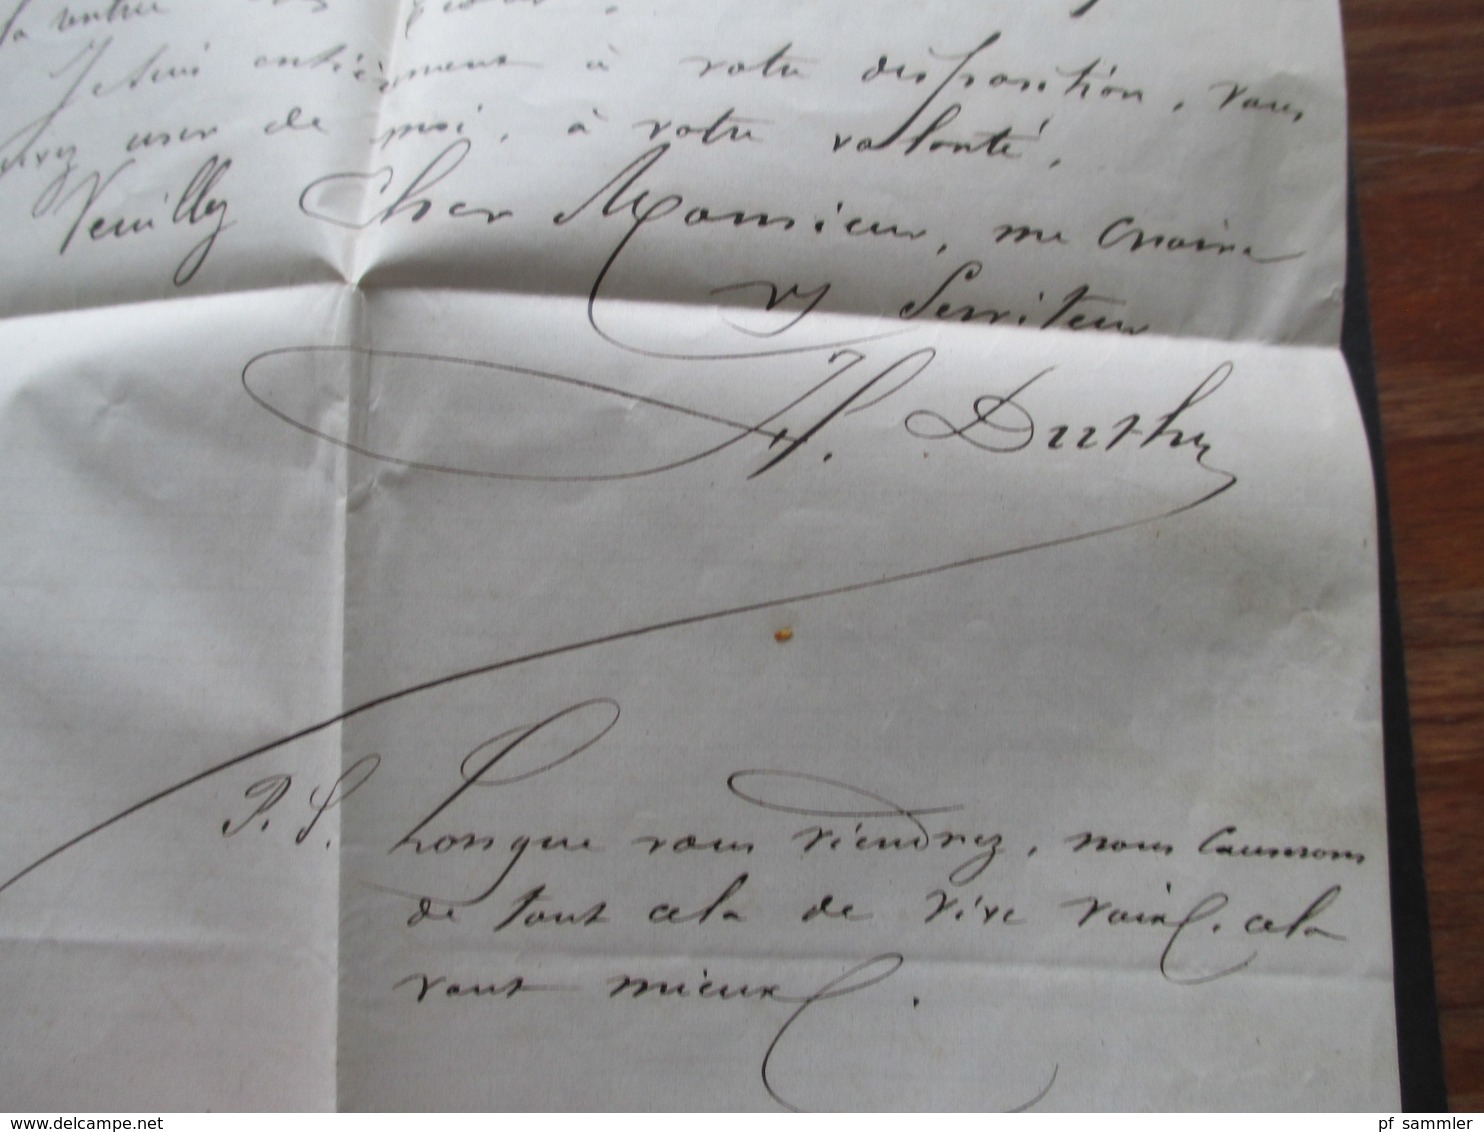 Je suis entièrement à votre disposition, vous
user de moi, à votre volonté.
Veuillez Cher Monsieur, me croire
Serviteur
P.S. Lorsque vous viendrez, nous causerons
de tout cela de vive voix, cela
vaut mieux.
pf_sammler